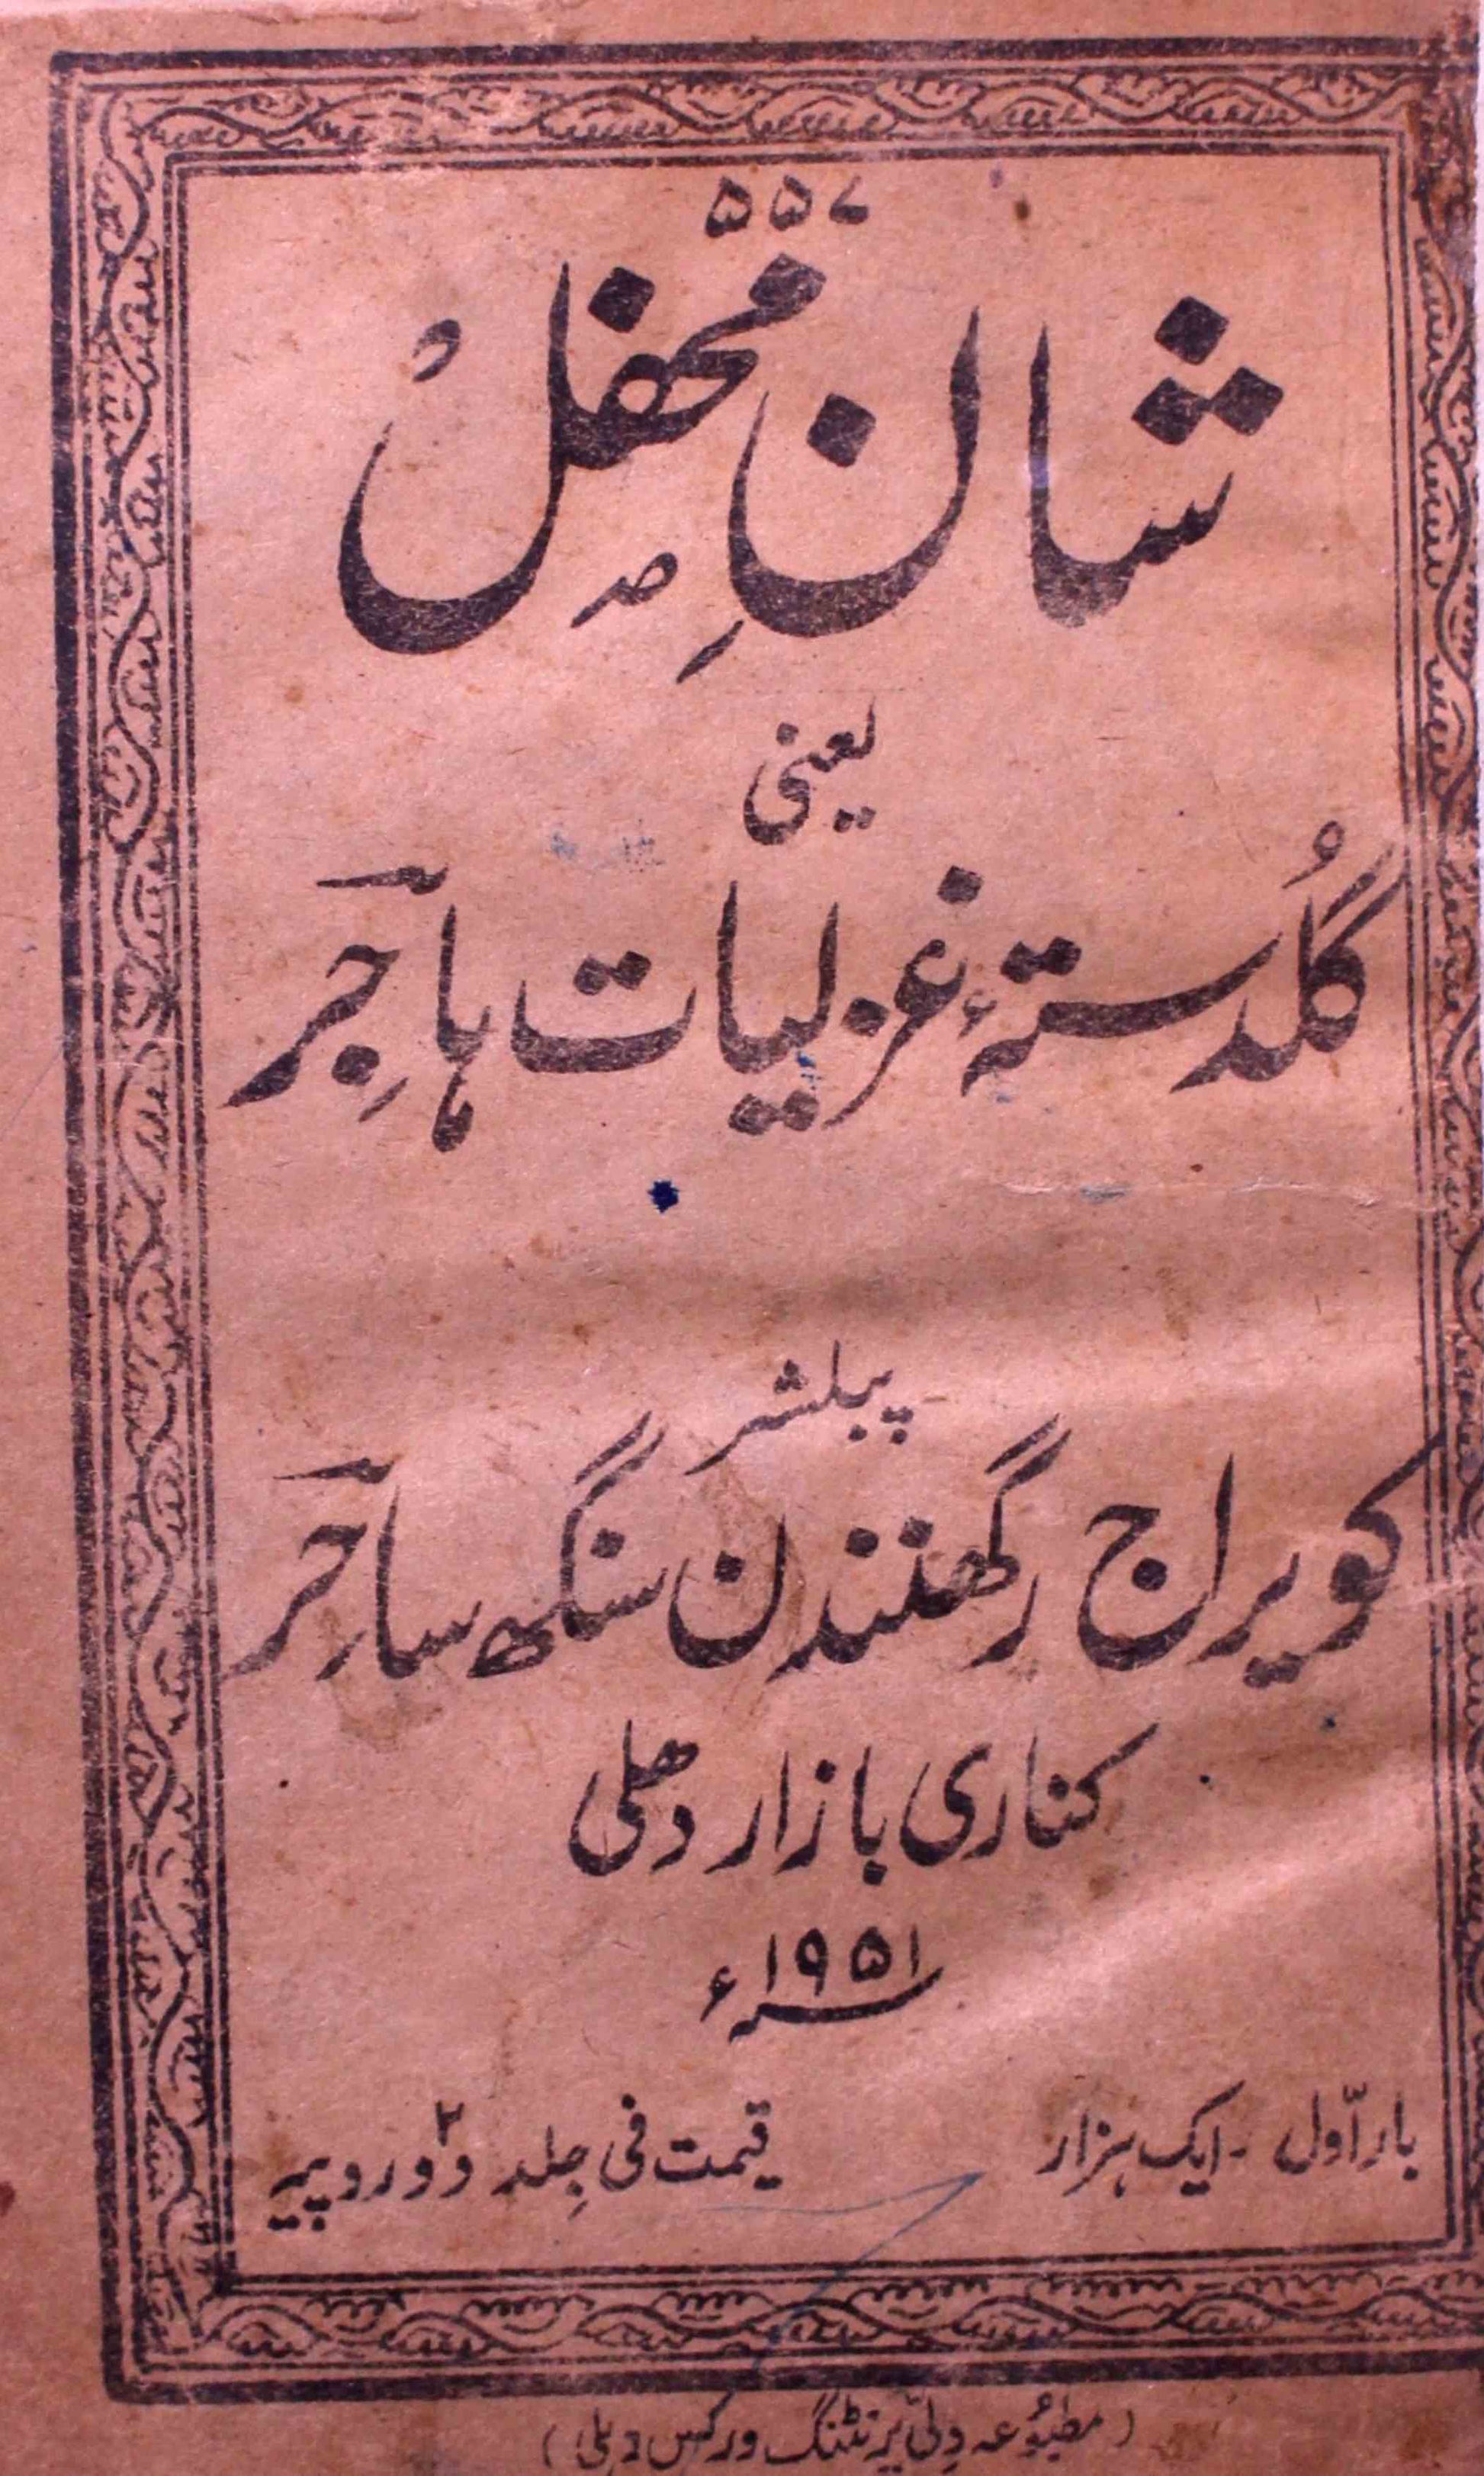 ۵۵۷
شانِ محفل
یعنی
گُلدستۂ غزلیات ہاجِر
پبلشر
کویراج رگھنندن سنگھ ساحر
کناری بازار دھلی
سنہ ۱۹۵۱ء
بار اوّل - ایک ہزار
قیمت فی جِلد دو ۲ روپیہ
(مطبُوعہ دِلّی پرنٹنگ ورکس دہلی)